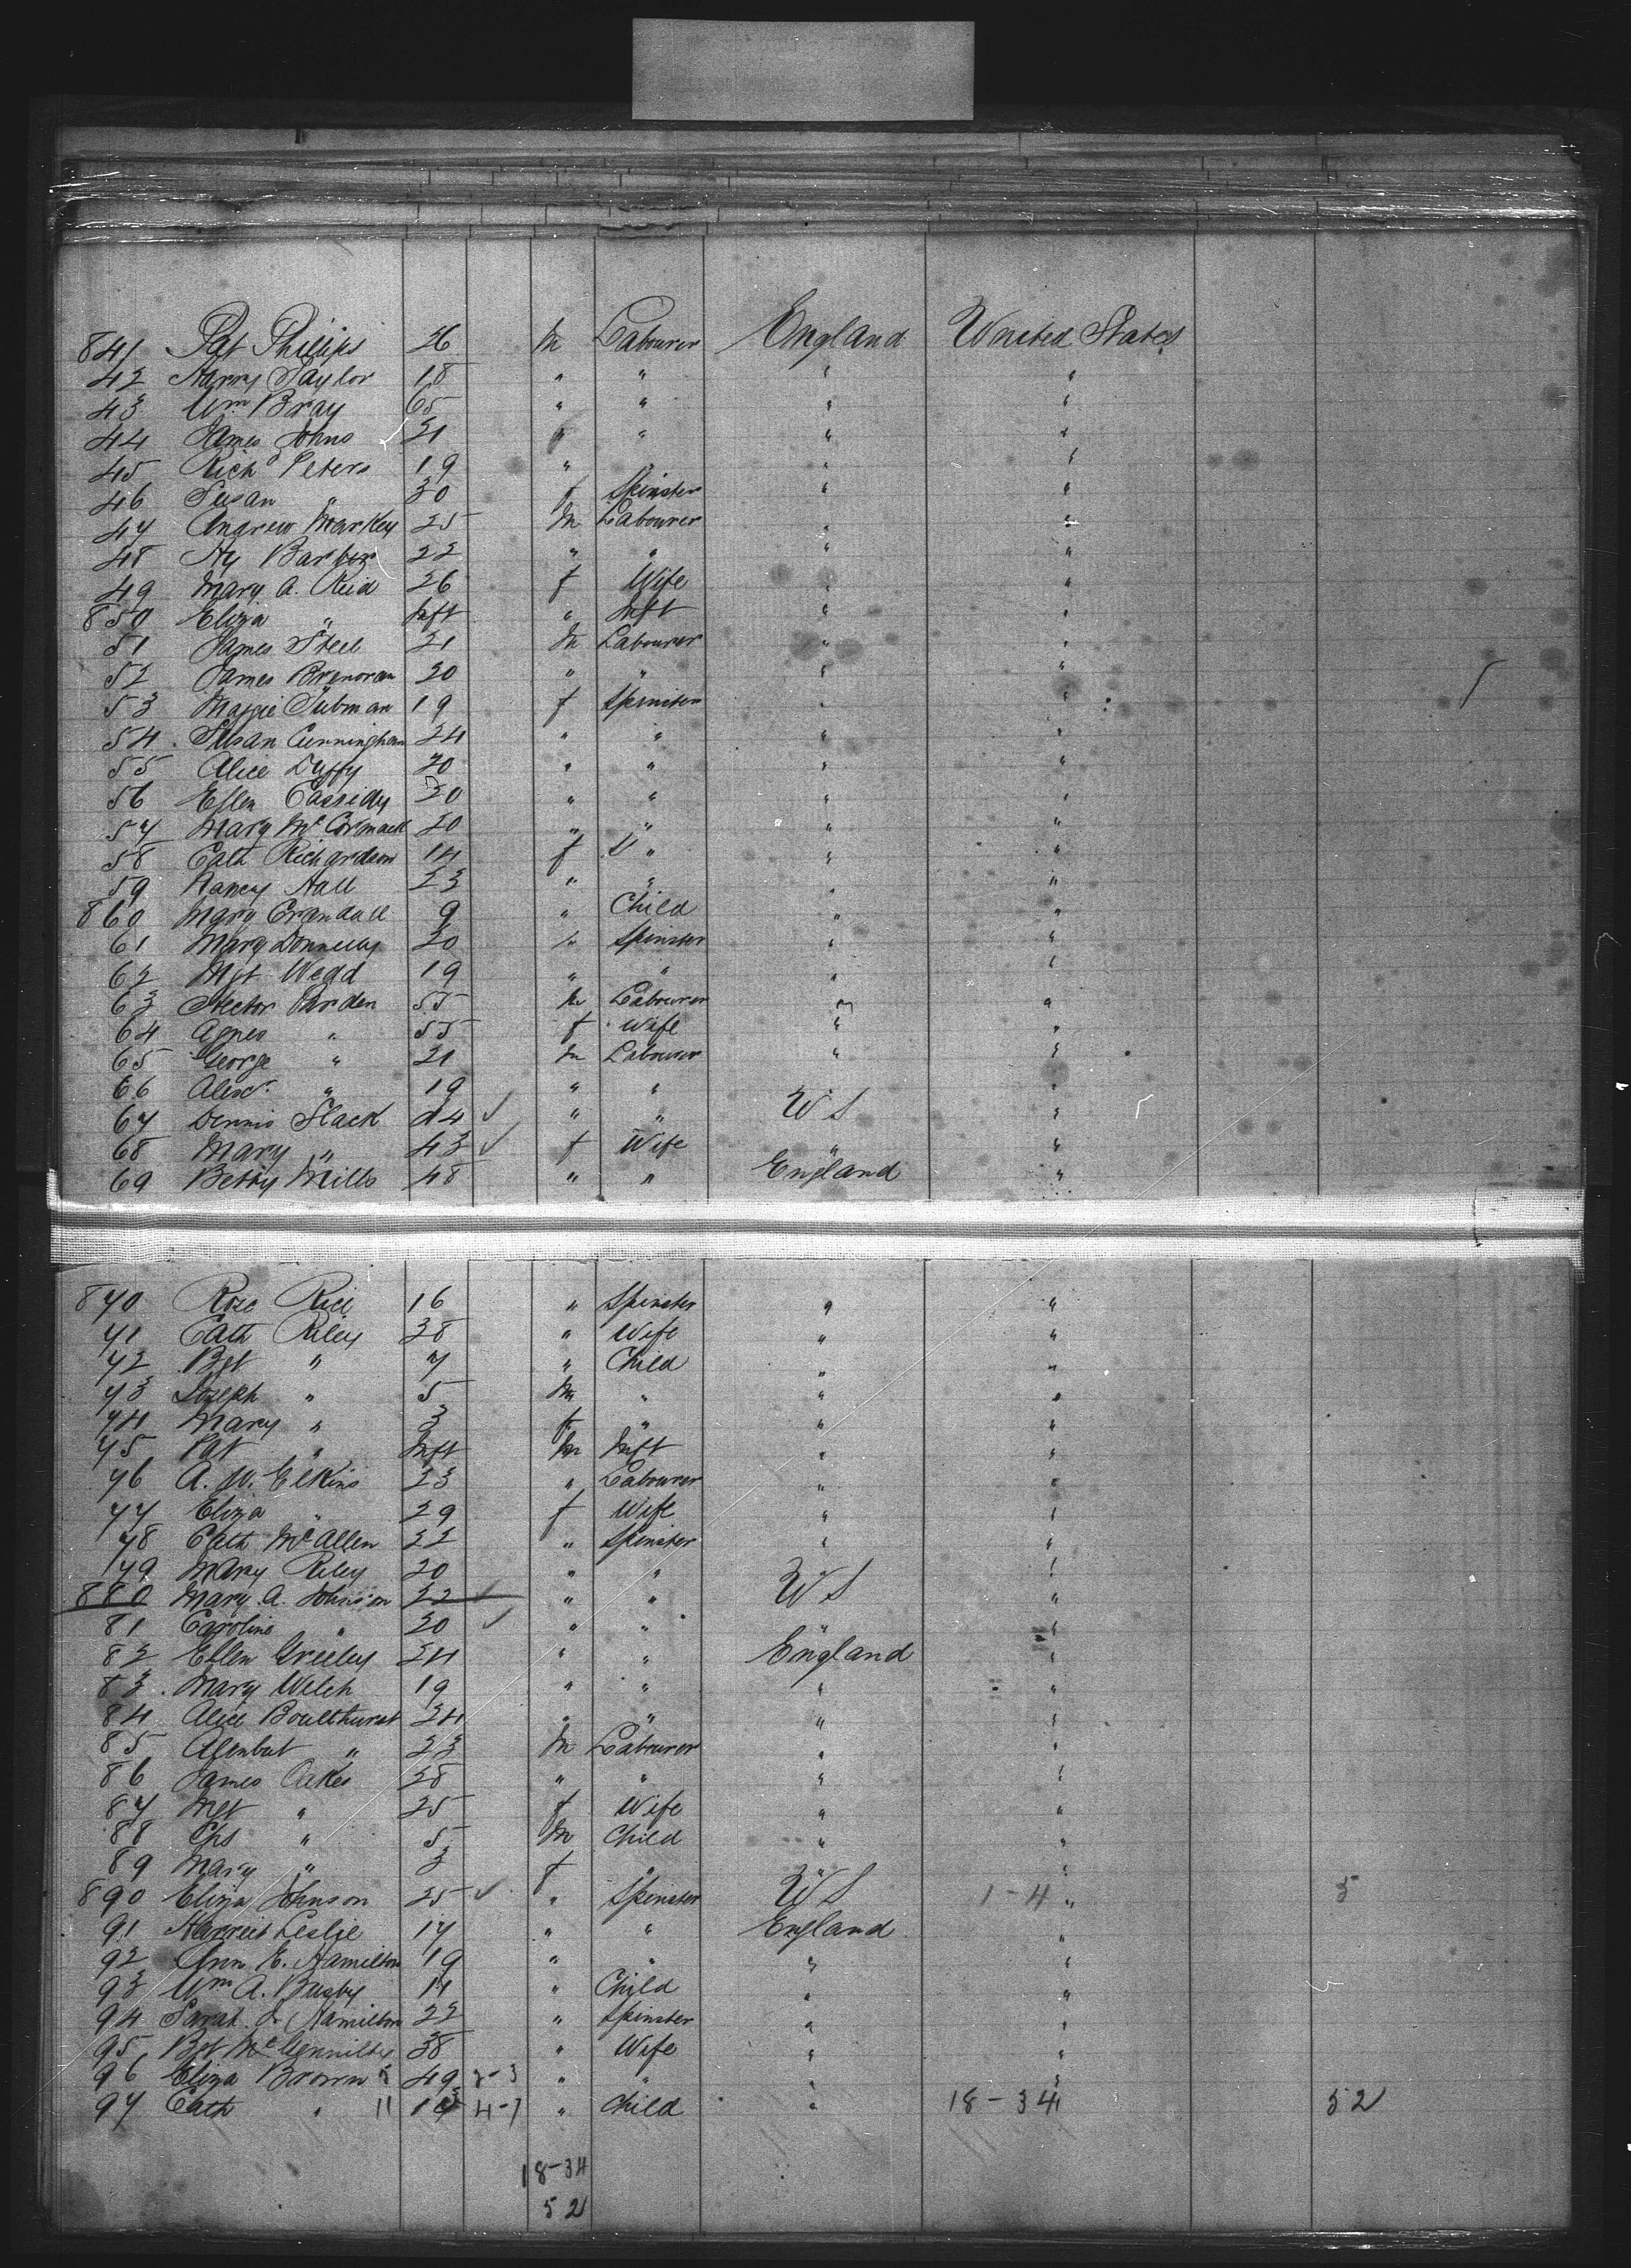 841 Pat Philips 26 m Labourer England United States
42 Harry Taylor 18 " " " "
43 Wm Bray 65 " " " "
44 James Johns 21 " " " "
45 Richd Peters 19 " " " "
46 Susan " 30 f Spinster " "
47 Andrew Markey 25 m Labourer " "
48 Hy Barber 22 " " " "
49 Mary A. Reid 26 f Wife " "
850 Eliza " Inft " Inft " "
51 James Steel 21 m Labourer " "
52 James 20 " " " "
53 Maggie Tubman 19 f Spinster " "
54 Susan Cunningham 24 " " " "
55 Alice Duffy 20 " " " "
56 Ellen Cassidy 20 " " " "
57 Mary McCormack 20 " " " "
58 Cath Richardson 14 f " " "
59 Nancy Hall 23 " " " "
860 Mary Crandall 9 " Child " "
61 Mary Donnelly 20 " Spinster " "
62 Mgt Wedd 19 " " " "
63 Hector Parden 55 m Labourer " "
64 Agnes " 55 f Wife " "
65 George " 21 m Labourer " "
66 Alexr " 19 " " " "
67 Dennis Slack 44 " " US "
68 Mary " 43 f Wife " "
69 Betsy Mills 48 " " England "
870 Rose Rice 16 " Spinster " "
71 Cath Riley 38 " Wife " "
72 Bgt " 7 " Child " "
73 Joseph " 5 m " " "
74 Mary " 3 f " " "
75 Pat " Inft m Inft " "
76 A. W. Elkins 23 " Labourer " "
77 Eliza " 29 f Wife " "
78 Cath McAllen 22 " Spinster " "
79 Mary Riley 20 " " " "
880 Mary A. Johnson 22 " " US "
81 Caroline " 20 " " " "
82 Ellen Greeley 24 " " England "
83 Mary Welch 19 " " " "
84 Alice Boulthurst 24 " " " "
85 " 23 m Labourer " "
86 James Oakes 28 " " " "
87 Mgt " 25 f Wife " "
88 Chs " 5 m Child " "
89 Mary " 3 f " " "
890 Eliza Johnson 25 " Spinster US 1-4 " 5
91 Harriet Leslie 17 " " England "
92 Ann E. Hamilton 19 " " " "
93 Wm A. Bugby 11 " Child " "
94 Sarah J. Hamilton 22 " Spinster " "
95 Bgt 38 " Wife " "
96 Eliza Brown 49 2-3 " " " "
97 Cath " 11 4-7 " Child " 18-34 52
18-34
52